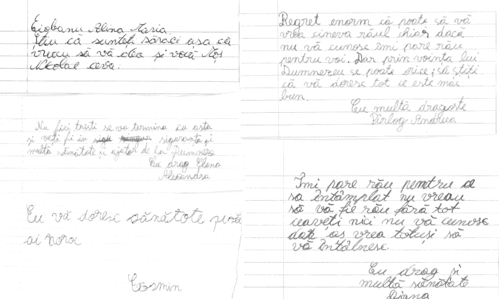 Ciobanu Elena Maria
Știu că sunteți săraci așa că
vreau să vă dea și vouă Moș
Nicolae ceva.
Nu fiți triști se va termina cu asta
și veți fi în siguranță și
multă sănătate și ajutor de la Dumnezeu
Cu drag Elena
Alexandra
Eu vă doresc sănătate
ai noroc
Cosmin
Regret enorm că poate să vă
vrea cineva răul chiar dacă
nu vă cunosc îmi pare rău
pentru voi. Dar prin voința lui
Dumnezeu se poate orice; să știți
că vă doresc tot ce este mai
bun.
Cu multă dragoste
Pîrlog Andreea
Îmi pare rău pentru ce
sa întâmplat nu vreau
să vă fie rău fără tot
ceaveți nici nu vă cunosc
dar aș vrea totuși să
vă întâlnesc.
Cu drag și
multă sănătate